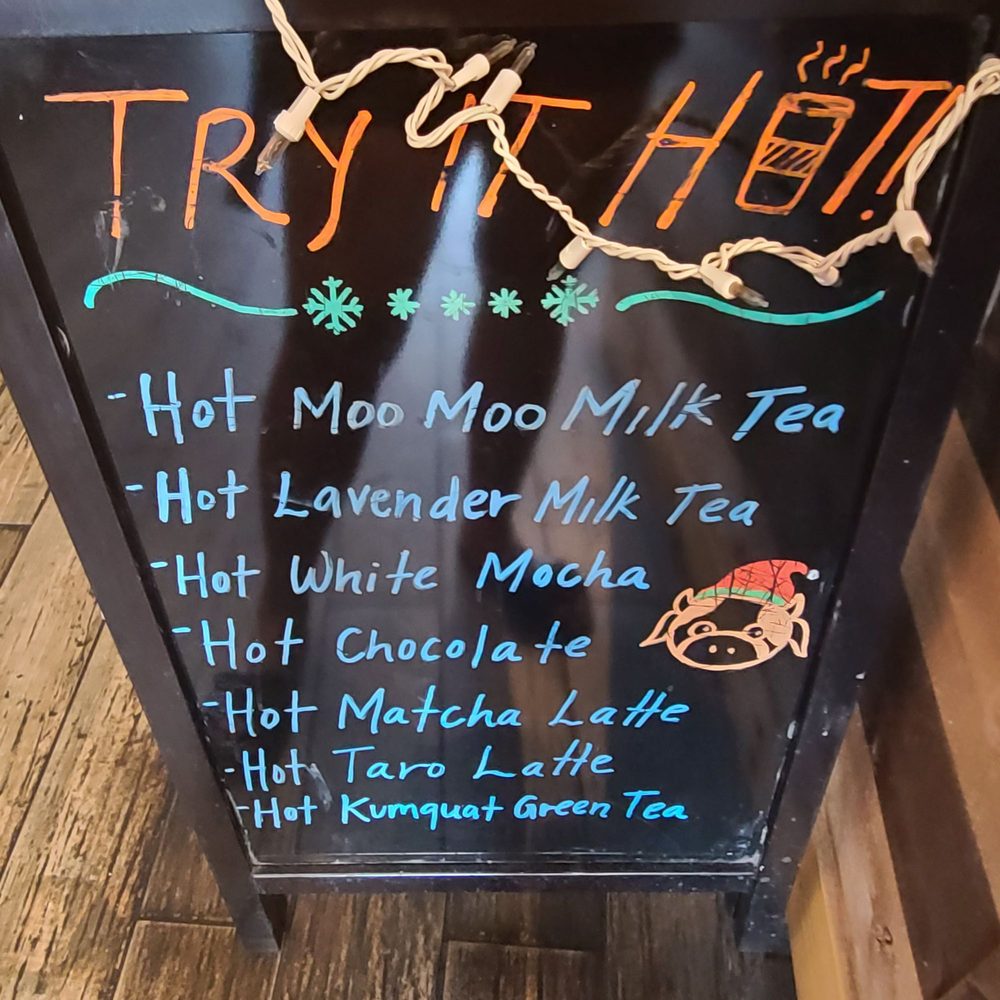 TRY IT HOT!
- Hot Moo Moo Milk Tea
- Hot Lavender Milk Tea
- Hot White Mocha
- Hot Chocolate
- Hot Matcha Latte
- Hot Taro Latte
- Hot Kumquat Green Tea